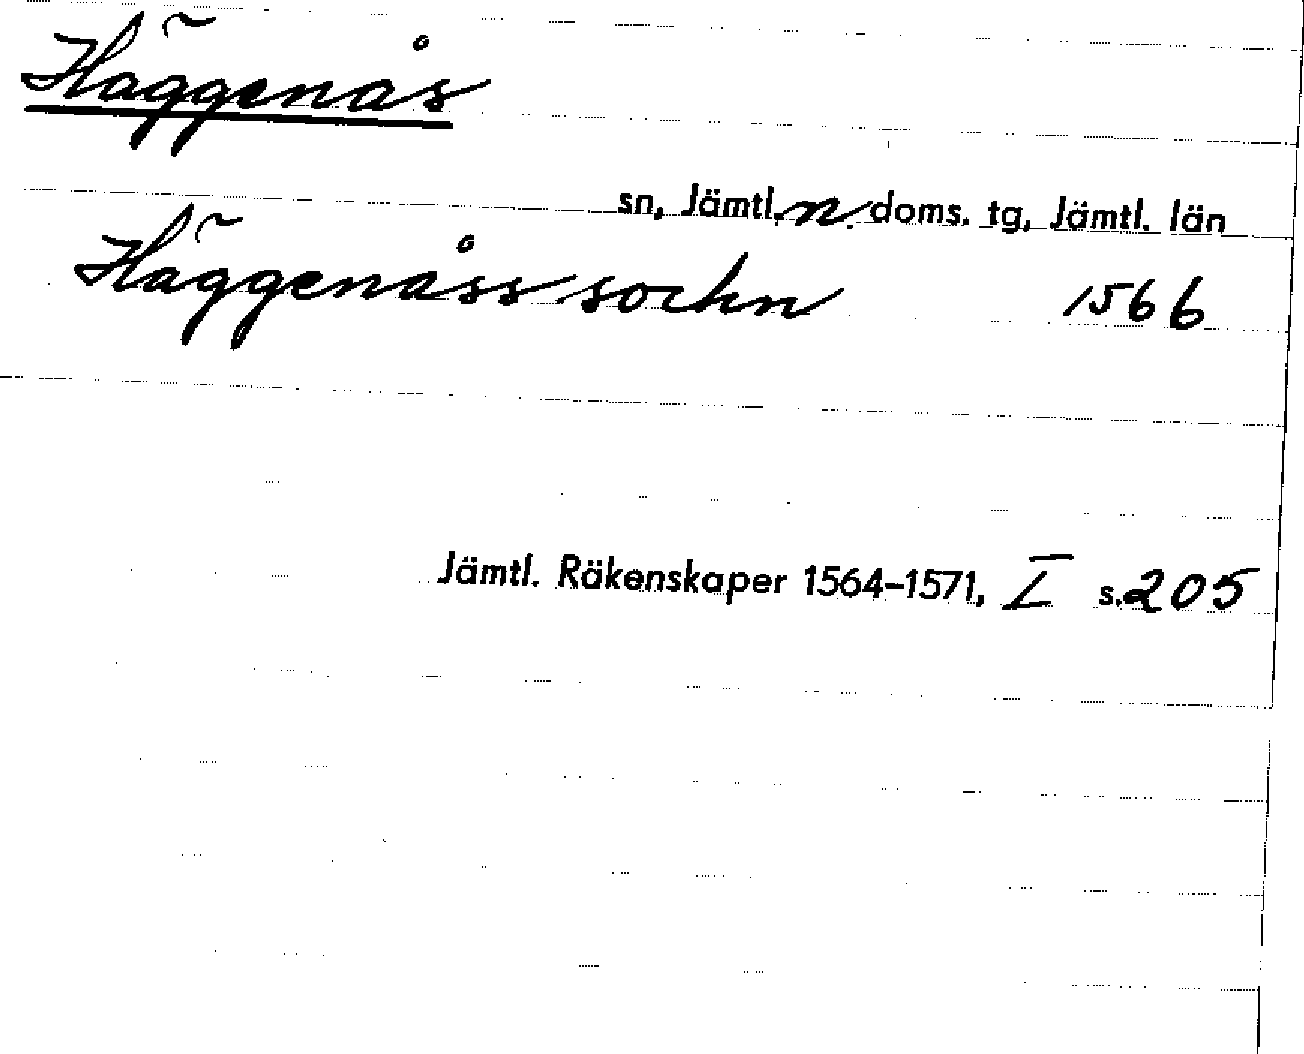 Häggenås
sn, Jämtl. n. doms. tg, Jämtl. län
Häggenåss sockn 1566
Jämtl. Räkenskaper 1564-1571, I s. 205